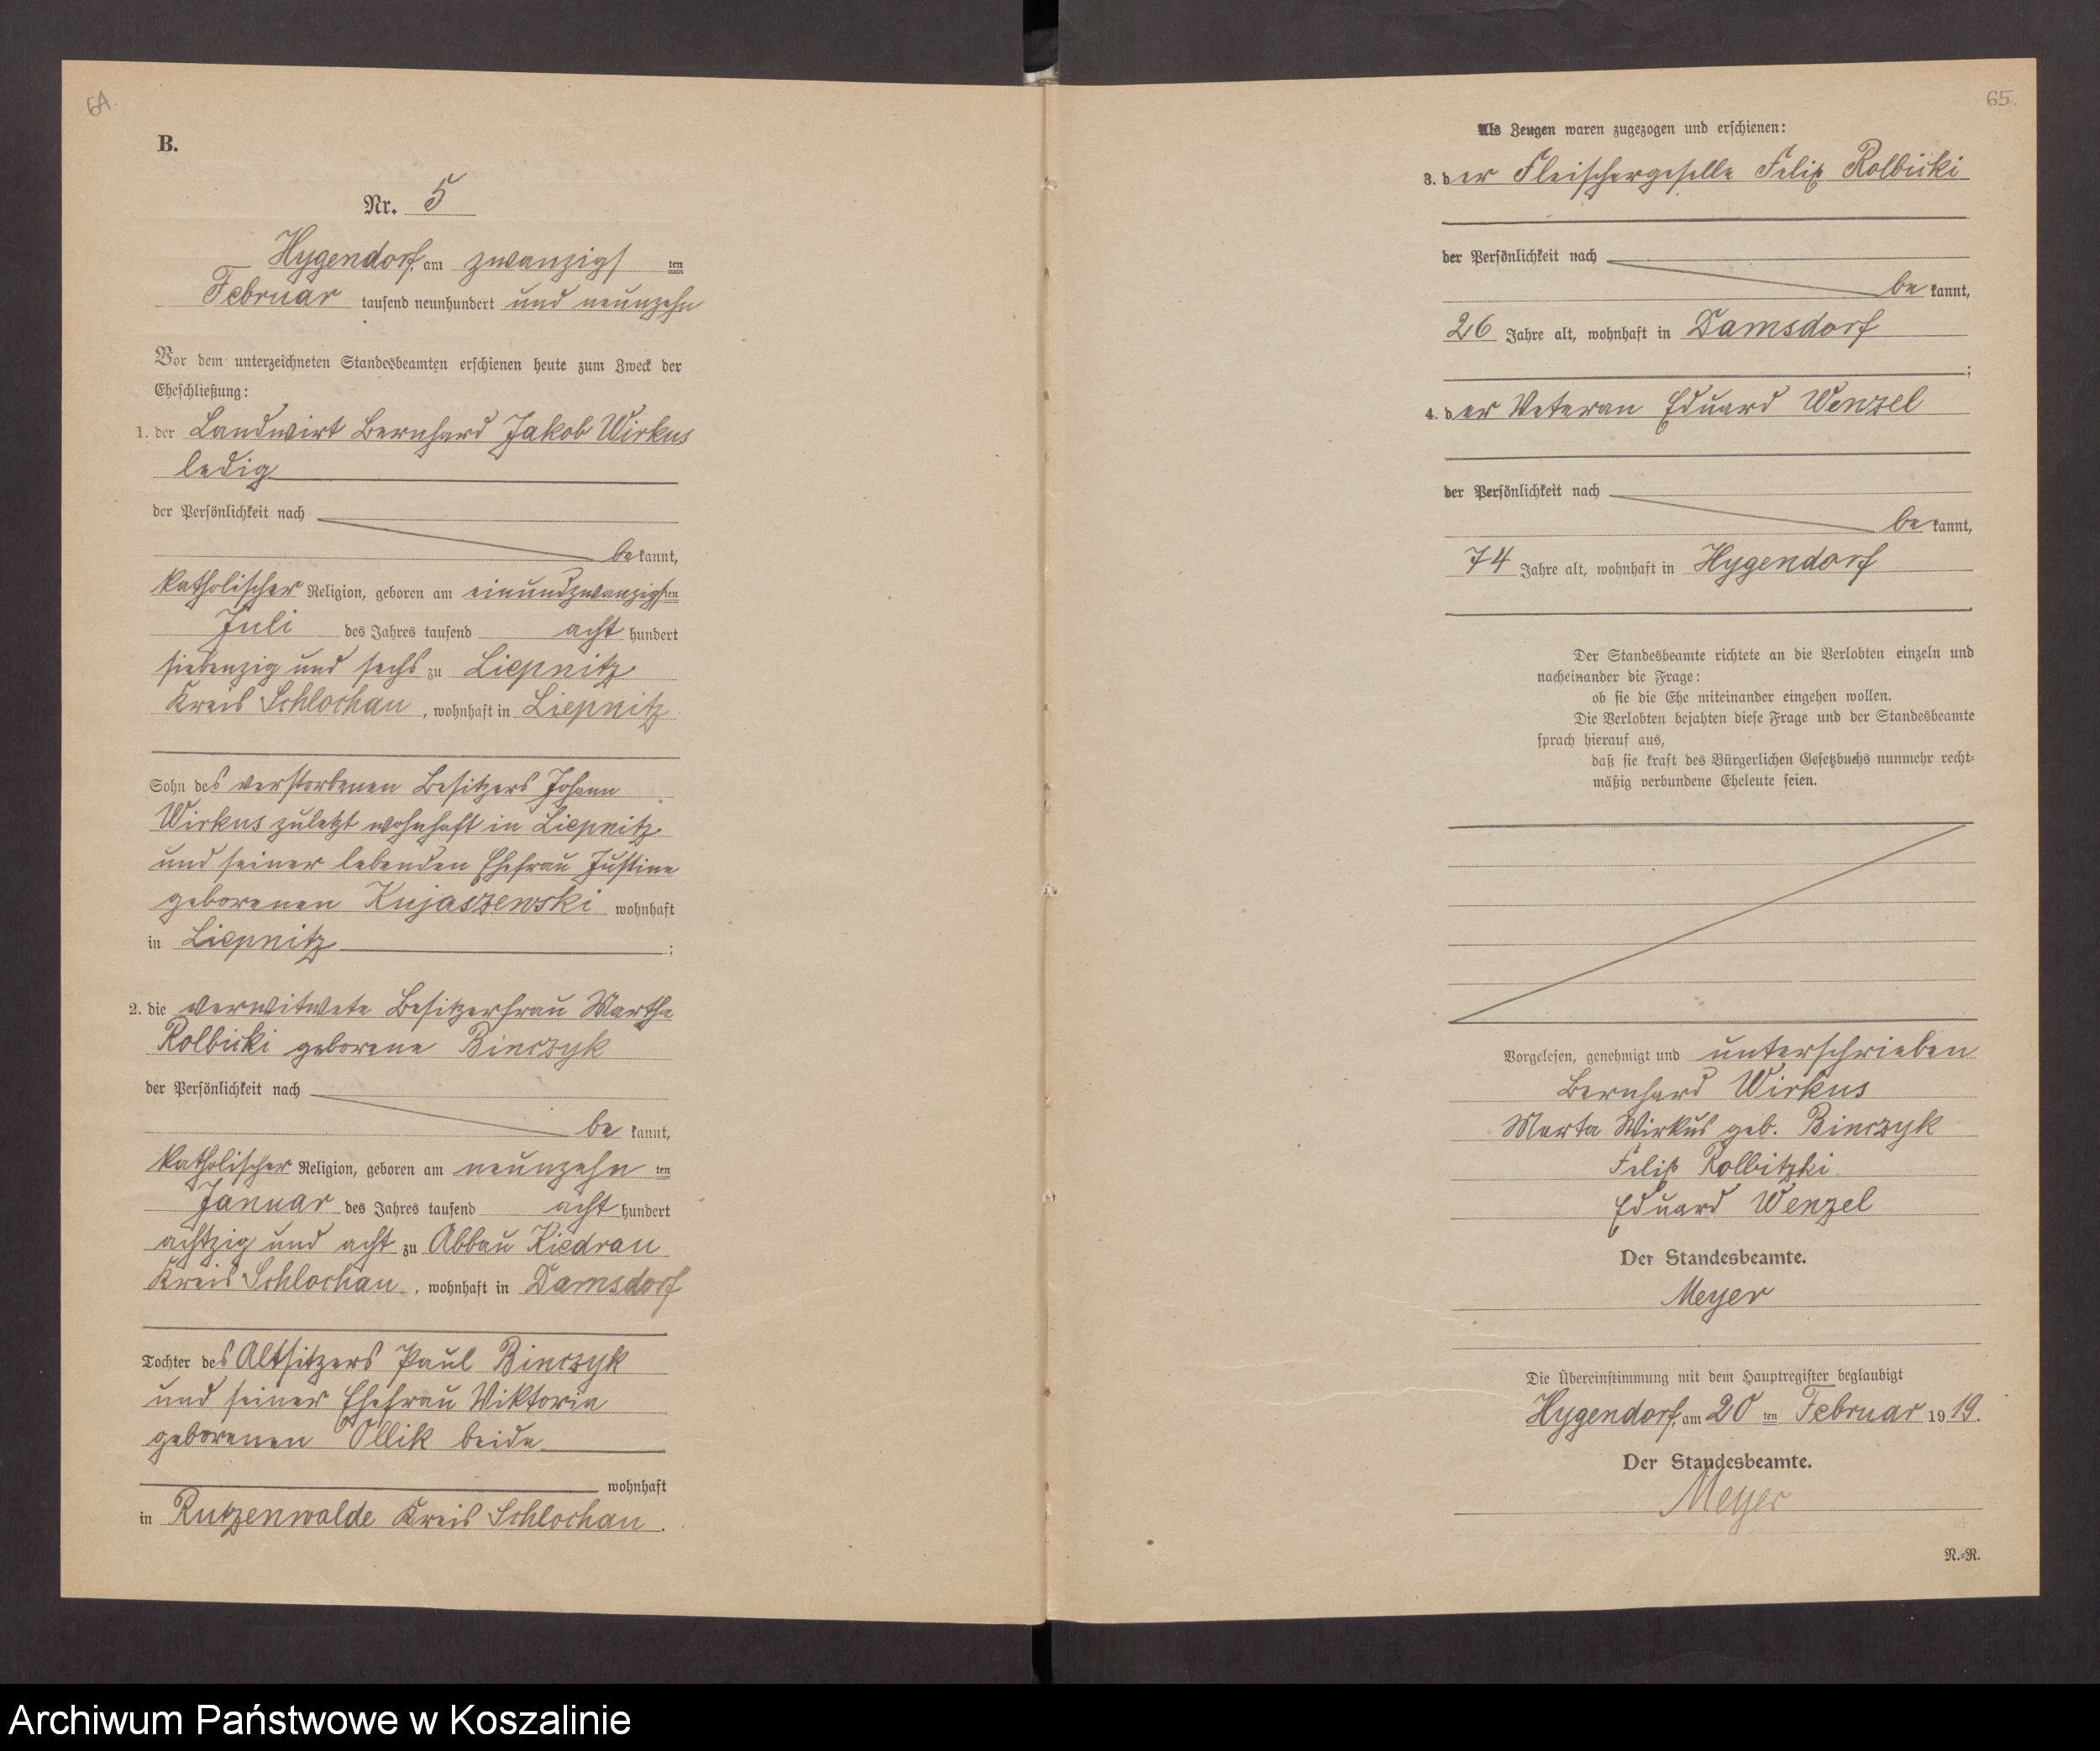 64.
B.
Nr. 5
Hygendorf, am zwanzigsten
Februar tausend neunhundert und neunzehn
Vor dem unterzeichneten Standesbeamten erschienen heute zum Zweck der
Eheschließung:
1. der Landwirt Bernhard Jakob Wirkus
ledig
der Persönlichkeit nach
bekannt,
katholischer Religion, geboren am einundzwanzigsten
Juli des Jahres tausend acht hundert
siebenzig und sechs zu Liepnitz
Kreis Schlochau, wohnhaft in Liepnitz
Sohn des verstorbenen Besitzers Johann
Wirkus zuletzt wohnhaft in Liepnitz
und seiner lebenden Ehefrau Justine
geborenen Kujaszewski wohnhaft
in Liepnitz ;
2. die verwitwete Besitzerfrau Martha
Rolbicki geborene Binczyk
der Persönlichkeit nach
be kannt,
katholischer Religion, geboren am neunzehn ten
Januar des Jahres tausend acht hundert
achtzig und acht zu Abbau Kiedrau
Kreis Schlochau, wohnhaft in Damsdorf
Tochter des Altsitzers Paul Binczyk
und seiner Ehefrau Viktoria
geborenen Ollik beide
wohnhaft
in Rutzenwalde Kreis Schlochau.
65.
Als Zeugen waren zugezogen und erschienen:
3. der Fleischergeselle Felix Rolbicki
der Persönlichkeit nach
be kannt,
26 Jahre alt, wohnhaft in Damsdorf
;
4. der Veteran Eduard Wenzel
der Persönlichkeit nach
bekannt,
74 Jahre alt, wohnhaft in Hygendorf
Der Standesbeamte richtete an die Verlobten einzeln und
nacheinander die Frage:
ob sie die Ehe miteinander eingehen wollen.
Die Verlobten bejahten diese Frage und der Standesbeamte
sprach hierauf aus,
daß sie kraft des Bürgerlichen Gesetzbuchs nunmehr recht-
mäßig verbundene Eheleute seien.
Vorgelesen, genehmigt und unterschrieben
Bernhard Wirkus
Marta Wirkus geb. Binczyk
Felix Rolbitzki
Eduard Wenzel
Der Standesbeamte.
Meyer
Die Übereinstimmung mit dem Hauptregister beglaubigt
Hygendorf, am 20 ten Februar 19 19.
Der Standesbeamte.
Meyer
N.-R.
Archiwum Państwowe w Koszalinie